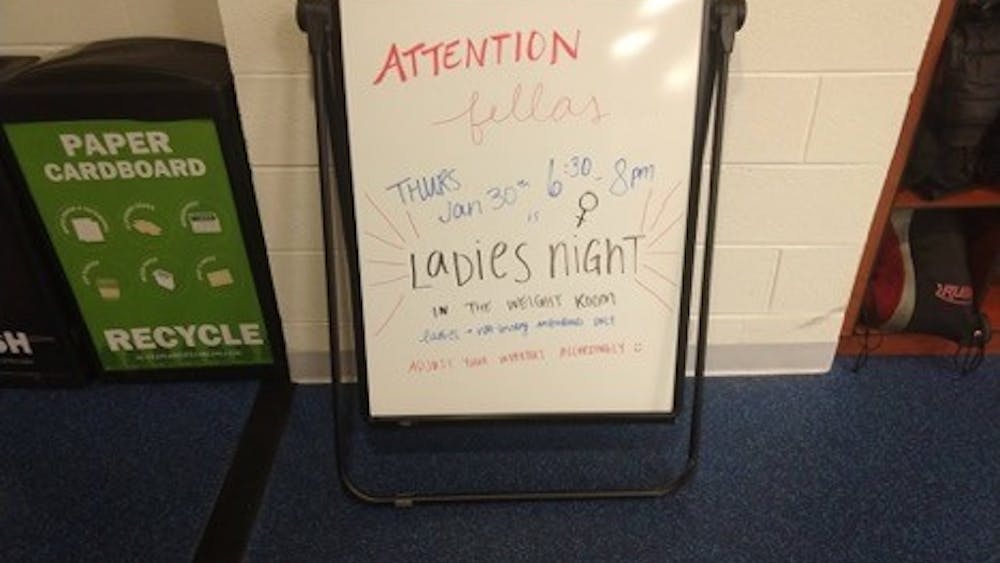 ATTENTION
fellas
THURS
Jan 30th 6:30 - 8pm
is ♀
LADIES NIGHT
IN THE WEIGHT ROOM
ladies + non-binary members only
ADJUST YOUR WORKOUTS ACCORDINGLY :)
PAPER
CARDBOARD
RECYCLE
SH